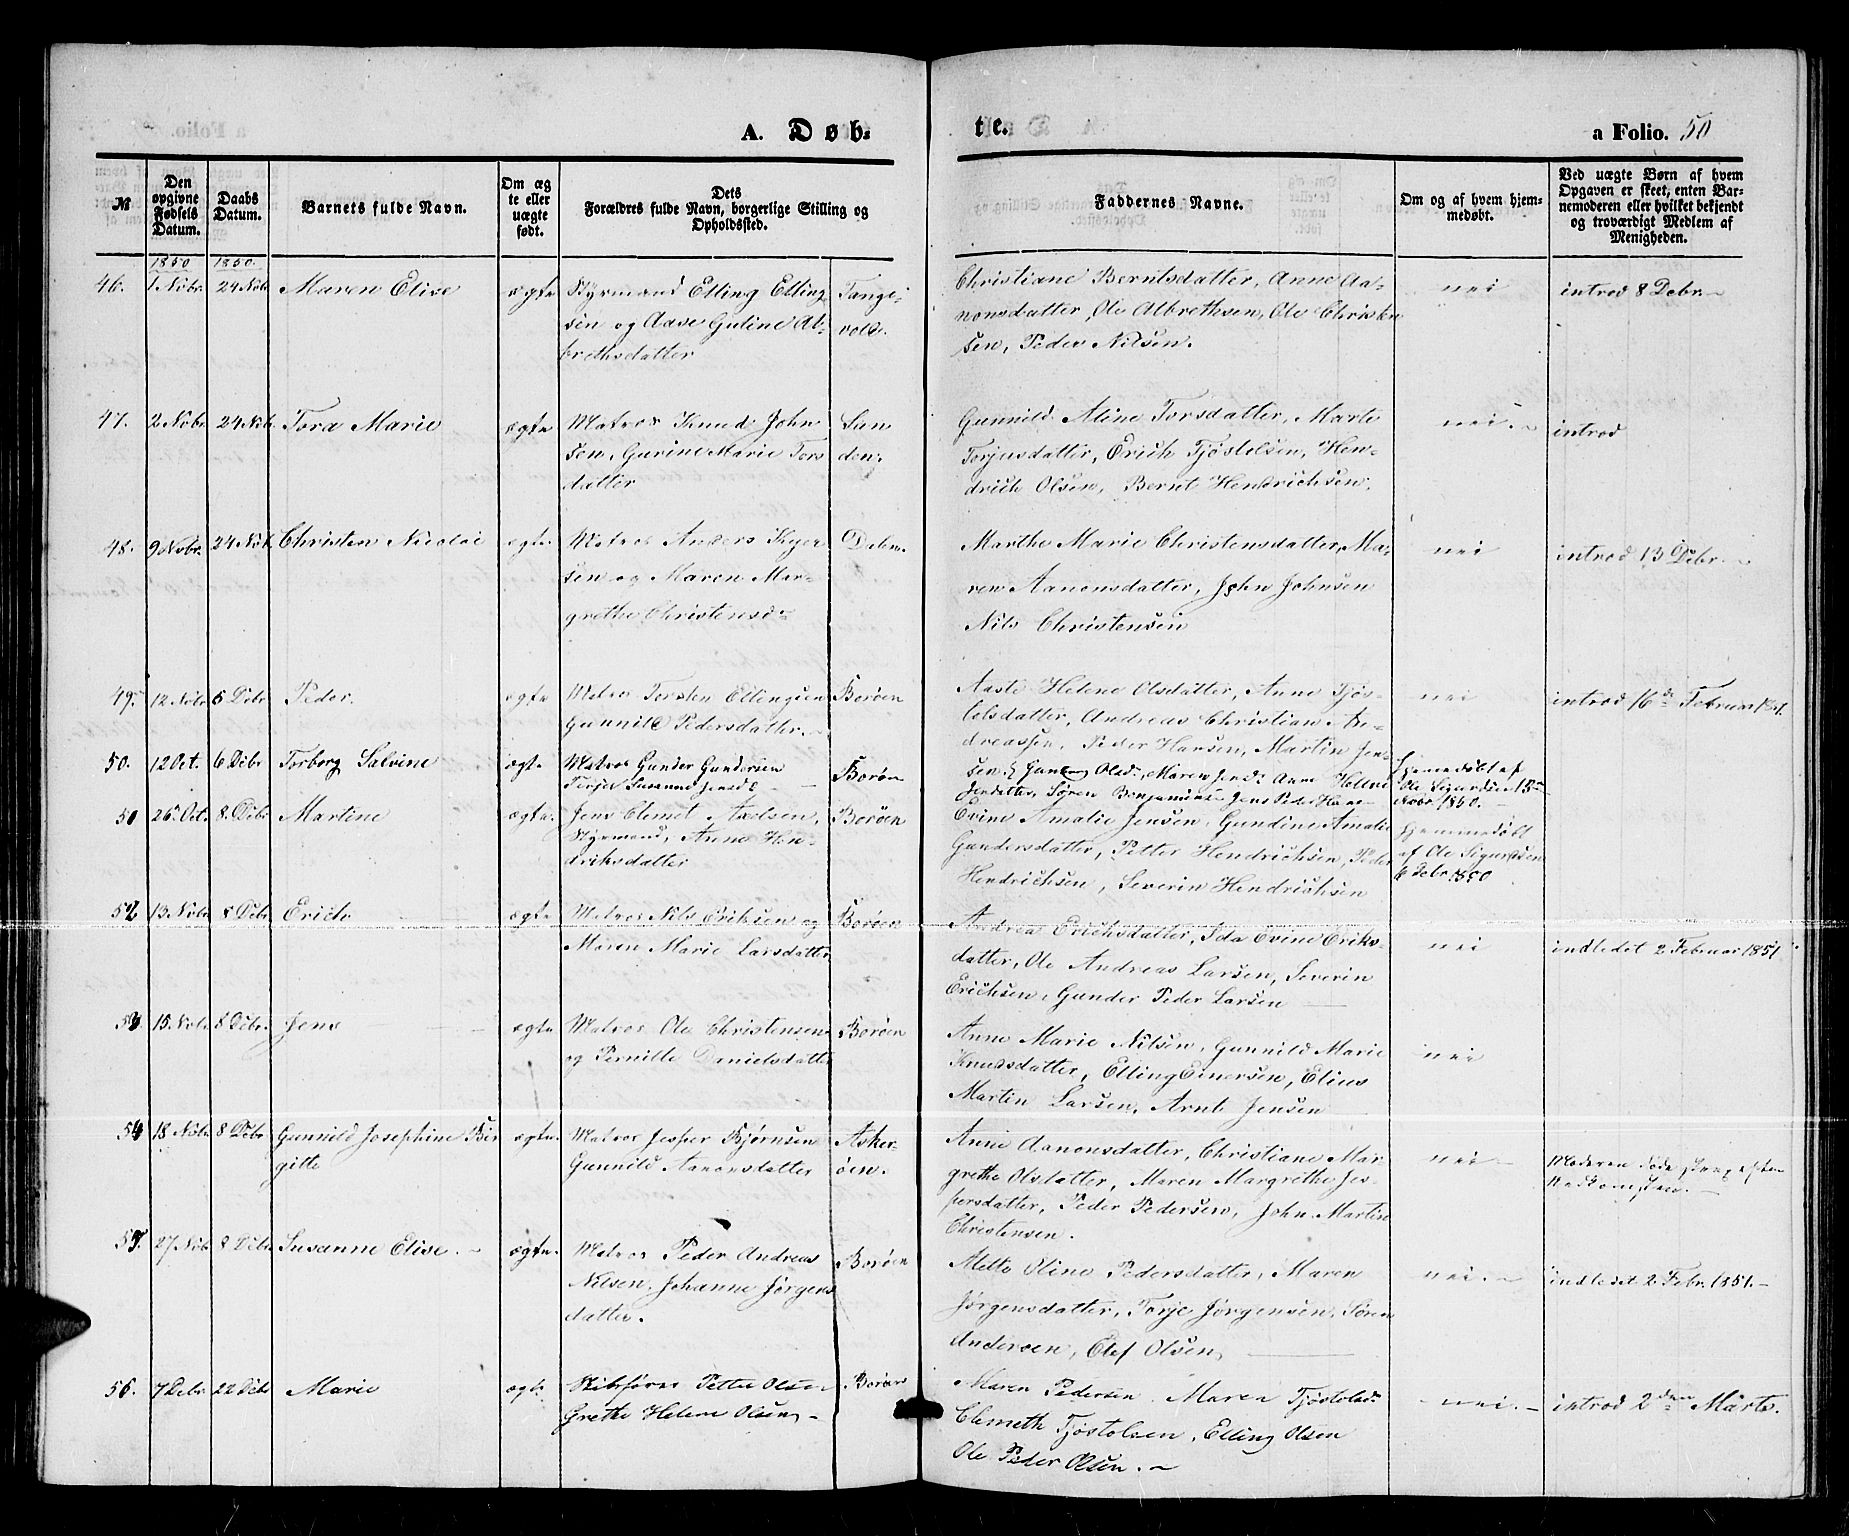 A. Døb-
te.
a Folio. 50
№
Den opgivne Fødsels Datum.
Daabs Datum.
Barnets fulde Navn.
Om ægte eller uægte født.
Dets Forældres fulde Navn, borgerlige Stilling og Opholdssted.
Faddernes Navne.
Om og af hvem hjemmedøbt.
Ved uægte Børn af hvem Opgaven er skeet, enten Barnemoderen eller hvilket bekjendt og troværdigt Medlem af Menigheden.
1850 1850.
46. 1 Nobr. 24 Nob. Maren Elise ægte Styrmand Elling Elling
sen og Aase Guline Al-
brethsdatter
Tange-
vold.
Christiane Berntsdatter, Anne Aa-
nonsdatter, Ole Albrethsen, Ole Christen
sen, Peder Nilsen.
nei
introd 8 Debr.
47. 2 Nobr. 24 Nob. Tora Marie ægte Matros Knud John
sen, Gurine Marie Tors
datter
San
den.
Gunnild Aline Torsdatter, Marte
Torjusdatter, Erich Tjøstelsen, Hen-
drich Olsen, Bernt Hendrichsen.
nei.
introd
48. 9 Nobr. 24 Nob. Christen Nicolai ægte Matros Anders Kjer
sen og Maren Mar-
grethe Christensd
Marthe Marie Christensdatter, Ma-
ren Aanonsdatter, John Johnsen
Nils Christensen
nei
introd 13 Debr.
49. 12 Nobr. 6 Debr. Peder. ægte Matros Torsten Ellingsen
Gunnild Pedersdatter.
Borøen
Aaste Helene Olsdatter, Anne Tjøs-
tolsdatter, Andreas Christian An-
dreassen, Peder Hansen, Martin Jen-
sen.
nei
introd 16de Februar 1851.
50. 12 Oct. 6 Debr Torborg Salvine ægte Matros Gunder Gundersen
Terjer Susanne Jensd
Borøen
Olsd, Maren Jensd Anne Helene
Jensdatter, Søren Benjaminsen Jens Peter
Hjemmedøbt af
Ole Sigurdsen 15
Nobr. 1850.
51 26 Oct. 8. Debr Martine ægte. Jens Clemet Axelsen,
Styrmand, Anne Hen-
driksdatter
Borøen
Evine Amalie Jensen, Gundine Amalie
Gundersdatter, Petter Hendrichsen, Peder
Hendrichsen, Severin Hendrichsen
Hjemmedøbt
af Ole Sigurdsen
6 Debr 1850
52 13 Nobr. 8 Debr. Erich ægte Matros Nils Eriksen og
Maren Marie Larsdatter
Borøen
Andrea Erichsdatter, Ida Evine Eriks-
datter, Ole Andreas Larsen, Severin
Erichsen, Gunder Peder Larsen
nei
indledet 2 Februar 1851
53 15. Nobr. 8 Debr. Jens ægte Matros Ole Christensen
og Pernille Danielsdatter
Borøen
Anne Marie Nilsen, Gunnild Marie
Knudsdatter, Elling Einersen, Elius
Martin Larsen, Arnt Jensen
nei
54 18 Nobr. 8 Debr Gunnild Josephine Bir
gitte
ægte. Matros Jesper Bjørnsen
Gunnild Aanonsdatter
Asker-
øen.
Anne Aanonsdatter, Christiane Mar-
grethe Olsdatter, Maren Margrethe Jes-
persdatter, Peder Pedersen, John Martin
Christensen.
nei.
Moderen døde strax efter
Nedkomsten.
55. 27 Nobr. 8 Debr Susanne Elise. ægte. Matros Peder Andreas
Nilsen, Johanne Jørgens
datter.
Borøen
Mette Oline Pedersdatter, Maren
Jørgensdatter, Torje Jørgensen, Søren
Andersen, Olef Olsen,
nei.
indledet 2 Febr. 1851.
56. 7 Debr. 22 Debr Marie ægte Skibsfører Petter Olsen
Grethe Helene Olsen
Borøen
Maren Pedersen, Maren Tjøstolsd
Clemeth Tjøstolsen, Elling Olsen
Ole Peder Olsen.
nei.
introd 2den Marts.